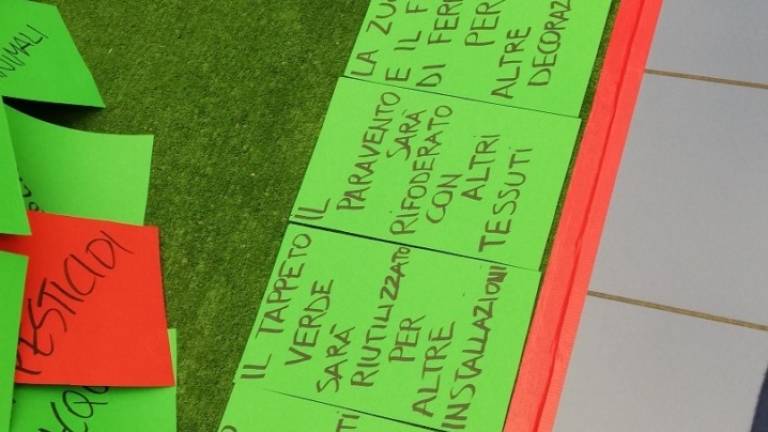 NIMALI
PESTICIDI
ACQU
LA ZU
E IL F
DI FER
PER
ALTRE
DECORAZ
IL
PARAVENTO
SARÀ
RIFODERATO
CON
ALTRI
TESSUTI
IL TAPPETO
VERDE
SARÀ
RIUTILIZZATO
PER
ALTRE
INSTALLAZIONI
TI